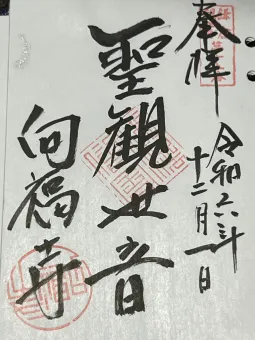 奉拝
令和六年
十二月一日
聖観世音
向福寺